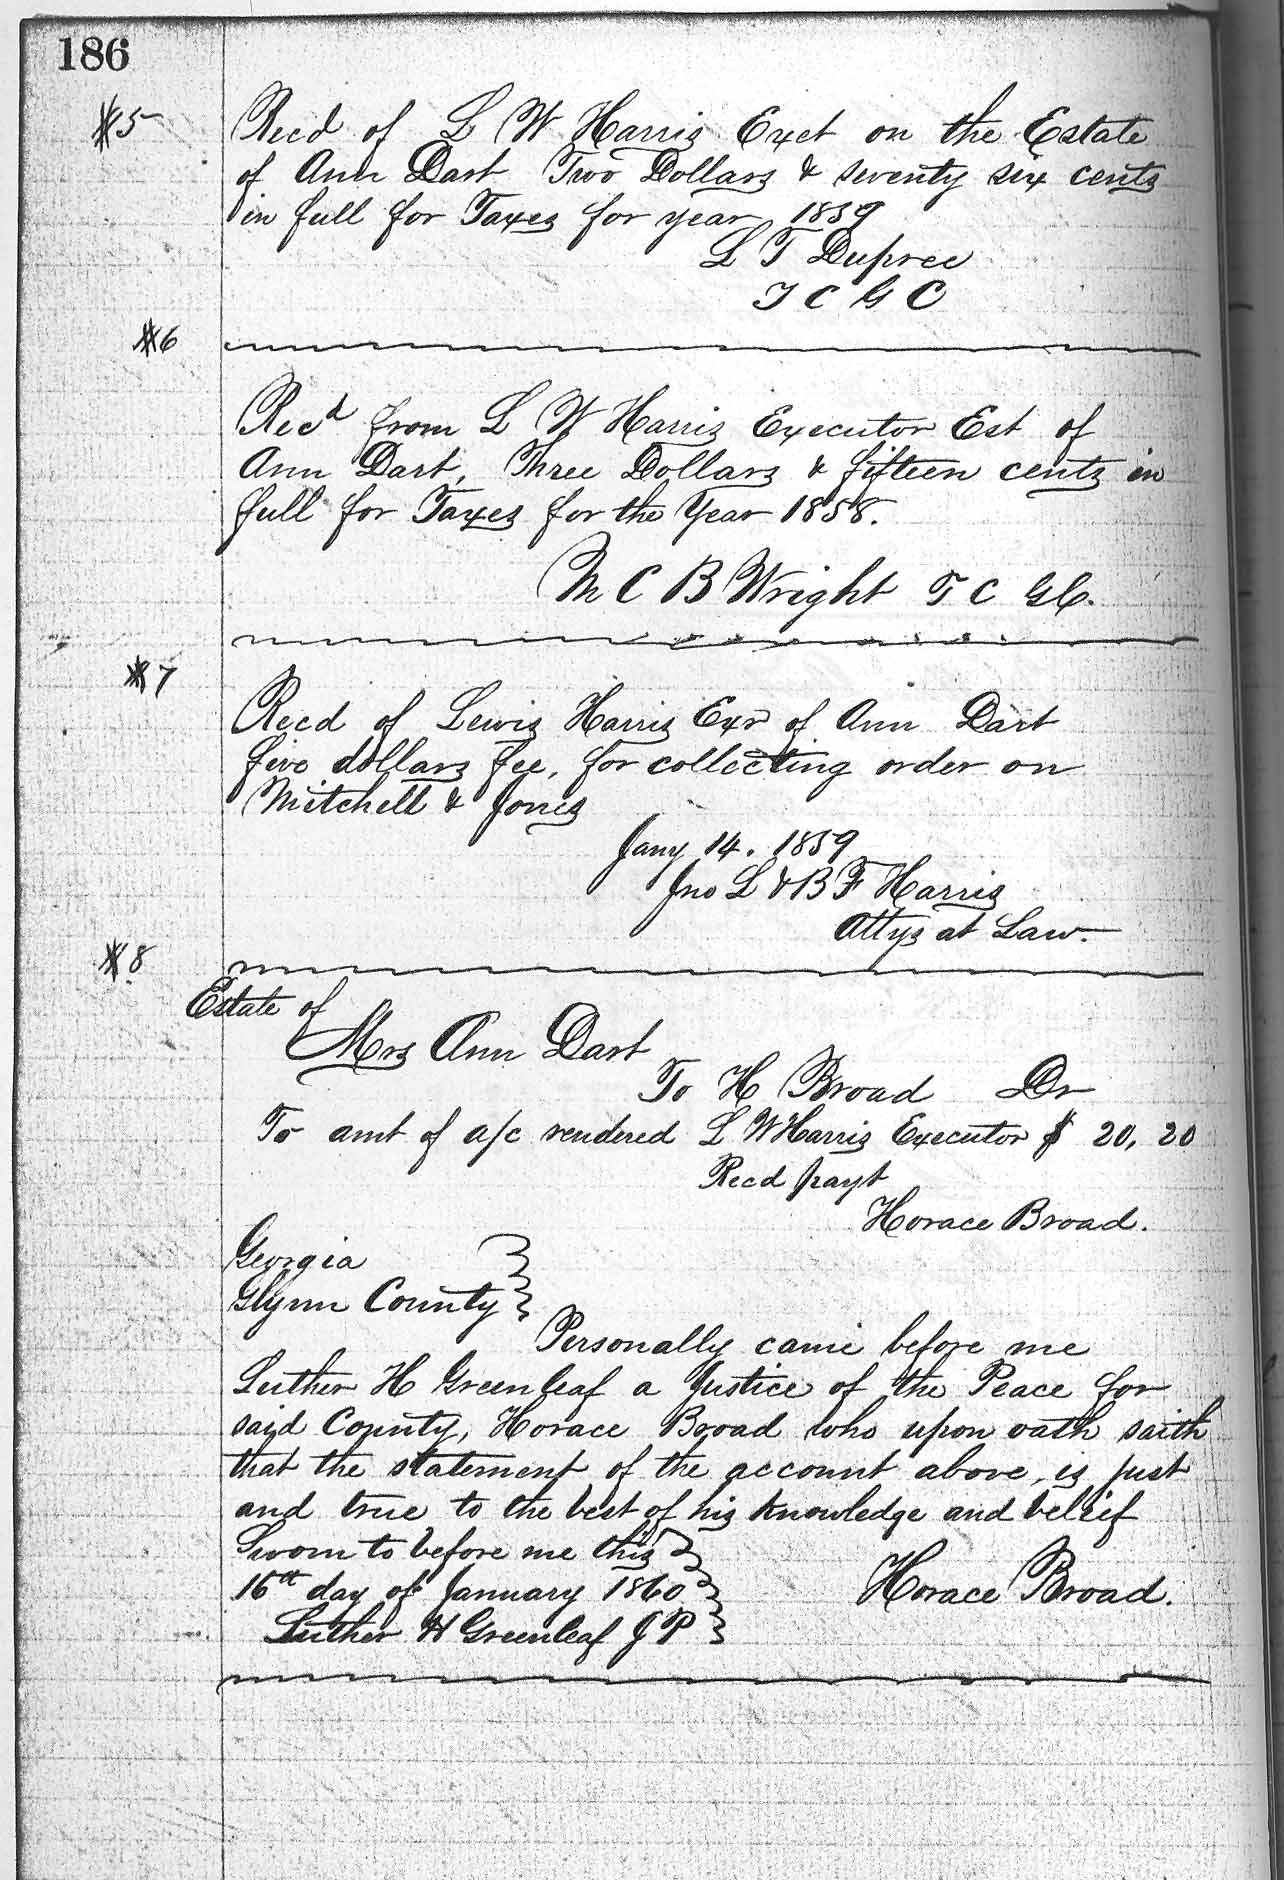 186
#5
Recd of L W Harris Exct on the Estate
of Ann Dart Two Dollars & seventy six cents
in full for Taxes for year 1859
L T Dupree
T C G C
#6
Recd from L W Harris Executor Est of
Ann Dart, Three Dollars & fifteen cents in
full for Taxes for the Year 1858.
M C B Wright T C G C.
#7
Recd of Lewis Harris Exr of Ann Dart
five dollars fee, for collecting order on
Mitchell & Jones
Jany 14. 1859
Jno L & B F Harris
Attys at Law.
#8
Estate of
Mrs Ann Dart
To H Broad Dr
To amt of a/c rendered L W Harris Executor $ 20,20
Recd payt
Horace Broad.
Georgia
Glynn County
Personally came before me
Luther H Greenleaf a Justice of the Peace for
said County, Horace Broad who upon oath saith
that the statement of the account above, is just
and true to the best of his knowledge and belief
Sworn to before me this
16th day of January 1860 Horace Broad.
Luther H Greenleaf J P